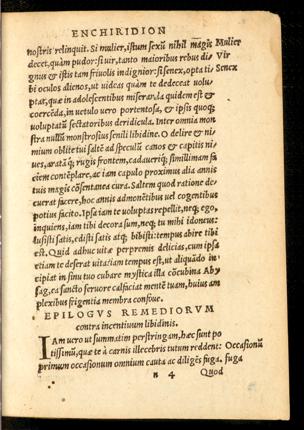 ENCHIRIDION
nostris relinquit. Si mulier, istum sexũ nihil magis Mulier
decet, quàm pudor: si uir, tanto maioribus rebus di/ Vir
gnus & istis tam friuolis indignior: si senex, opta ti/ Senex
bi oculos alienos, ut uideas quàm te dedeceat uolu/
ptas, quæ in adolescentibus miseranda quidem est &
coercẽda, in uetulo uero portentosa, & ipsis quoq;
uoluptatũ sectatoribus deridicula. Inter omnia mon
stra nullũ monstrosius senili libidine. O delire & ni
mium oblite tui saltẽ ad speculũ canos & capitis ni/
ues, aratãq; rugis frontem, cadaueriq; simillimam fa
ciem contẽplare, ac iam capulo proximus alia annis
tuis magis cõsentanea cura. Saltem quod ratione de/
cuerat facere, hoc annis admonẽtibus uel cogentibus
potius facito. Ipsa iam te uoluptas repellit, neq; ego,
inquiens, iam tibi decora sum, neq; tu mihi idoneus:
lusisti satis, edisti satis atq; bibisti: tempus abire tibi
est. Quid adhuc uitæ perpremis delicias, cum ipsa
etiam te deserat uita? iam tempus est, ut aliquãdo in
cipiat in sinu tuo cubare mystica illa cõcubina Aby
sag, ea sancto feruore calfaciat mentẽ tuam, huius am
plexibus frigentia membra confoue.
EPILOGVS REMEDIORVM
contra incentiuum libidinis.
IAm uero ut summatim perstringam, hæc sunt po
tissimũ, quæ te à carnis illecebris tutum reddent: Occasionũ
primum occasionum omnium cauta ac diligẽs fuga. fuga
n 4 Quod